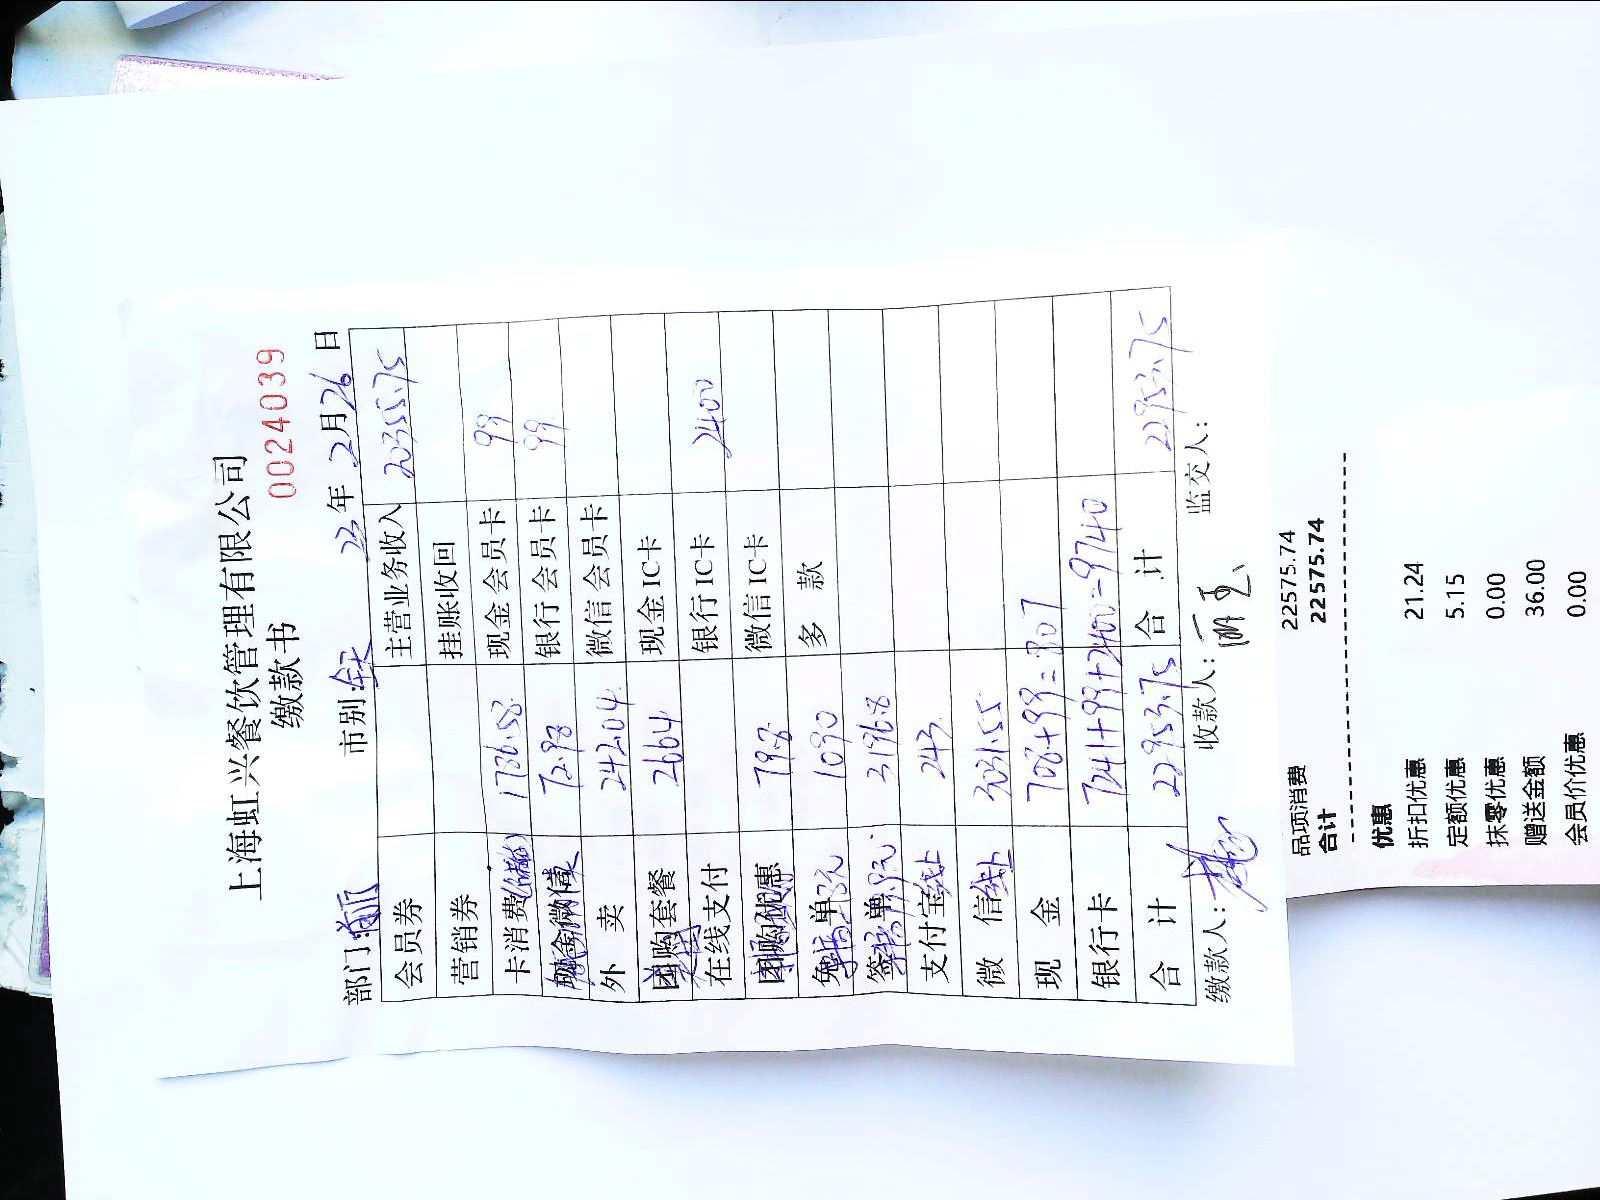 上海虹兴餐饮管理有限公司
缴款书
0024039
部门: 市别:全天 23年 2月26日
会员券 主营业务收入 20355.75
营销券 挂账收回
卡消费(储值) 1786.58 现金会员卡 99
72.98 银行会员卡 99
外 卖 2420.4 微信会员卡
团购套餐 2664 现金IC卡
在线支付 银行IC卡 2400
团购优惠 798 微信IC卡
免单 1090 多 款
签单 3196.8
支付宝线上 243
微 信线上 3031.55
现 金 708+99=807
银行卡 7241+99+2400=9740
合 计 22953.75 合 计 22953.75
缴款人: 收款人: 监交人:
品项消费 22575.74
合计 22575.74
优惠
折扣优惠 21.24
定额优惠 5.15
抹零优惠 0.00
赠送金额 36.00
会员价优惠 0.00